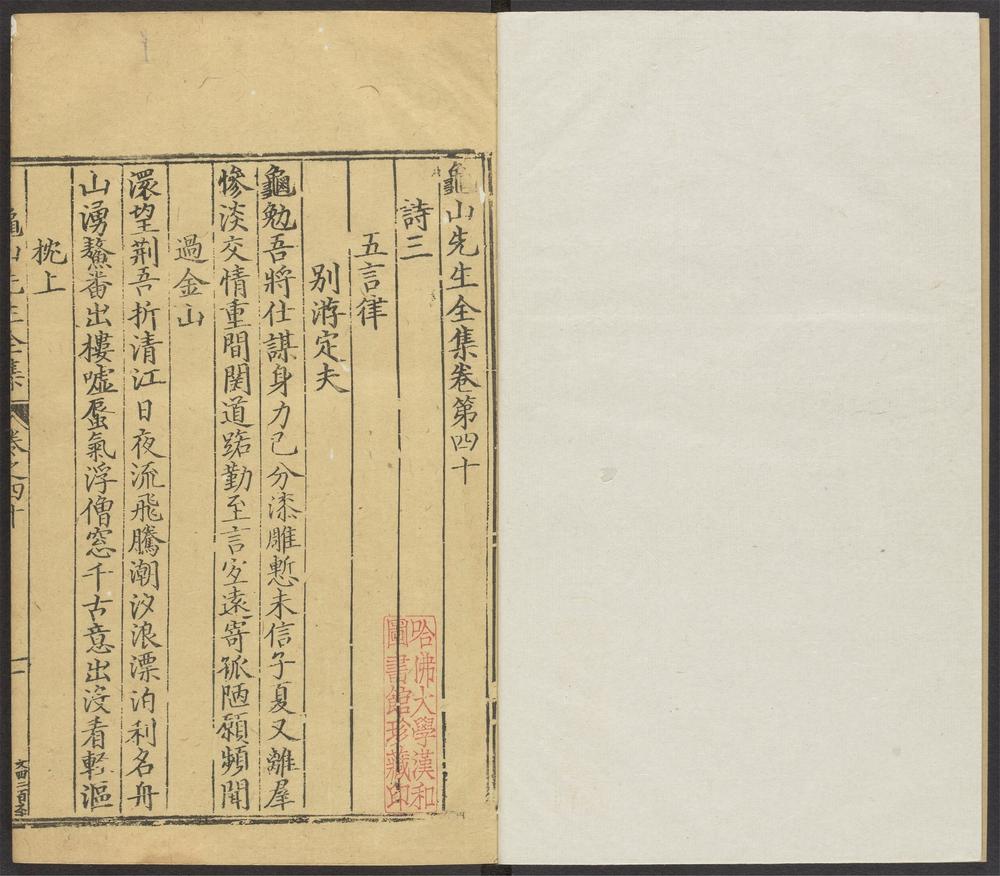 龜山先生全集卷第四十
詩三
五言律
別游定夫
黽勉吾將仕謀身力已分漆雕慙未信子夏又離羣
慘淡交情重間関道路勤至言宜遠寄孤陋願頻聞
過金山
還望荆吾折清江日夜流飛騰潮汐浪漂泊利名舟
山湧鰲番出樓噓蜃氣浮僧窓千古意出没看輕漚
枕上
龜山先生全集 卷之四十 一
哈佛大學漢和
圖書館珍藏印